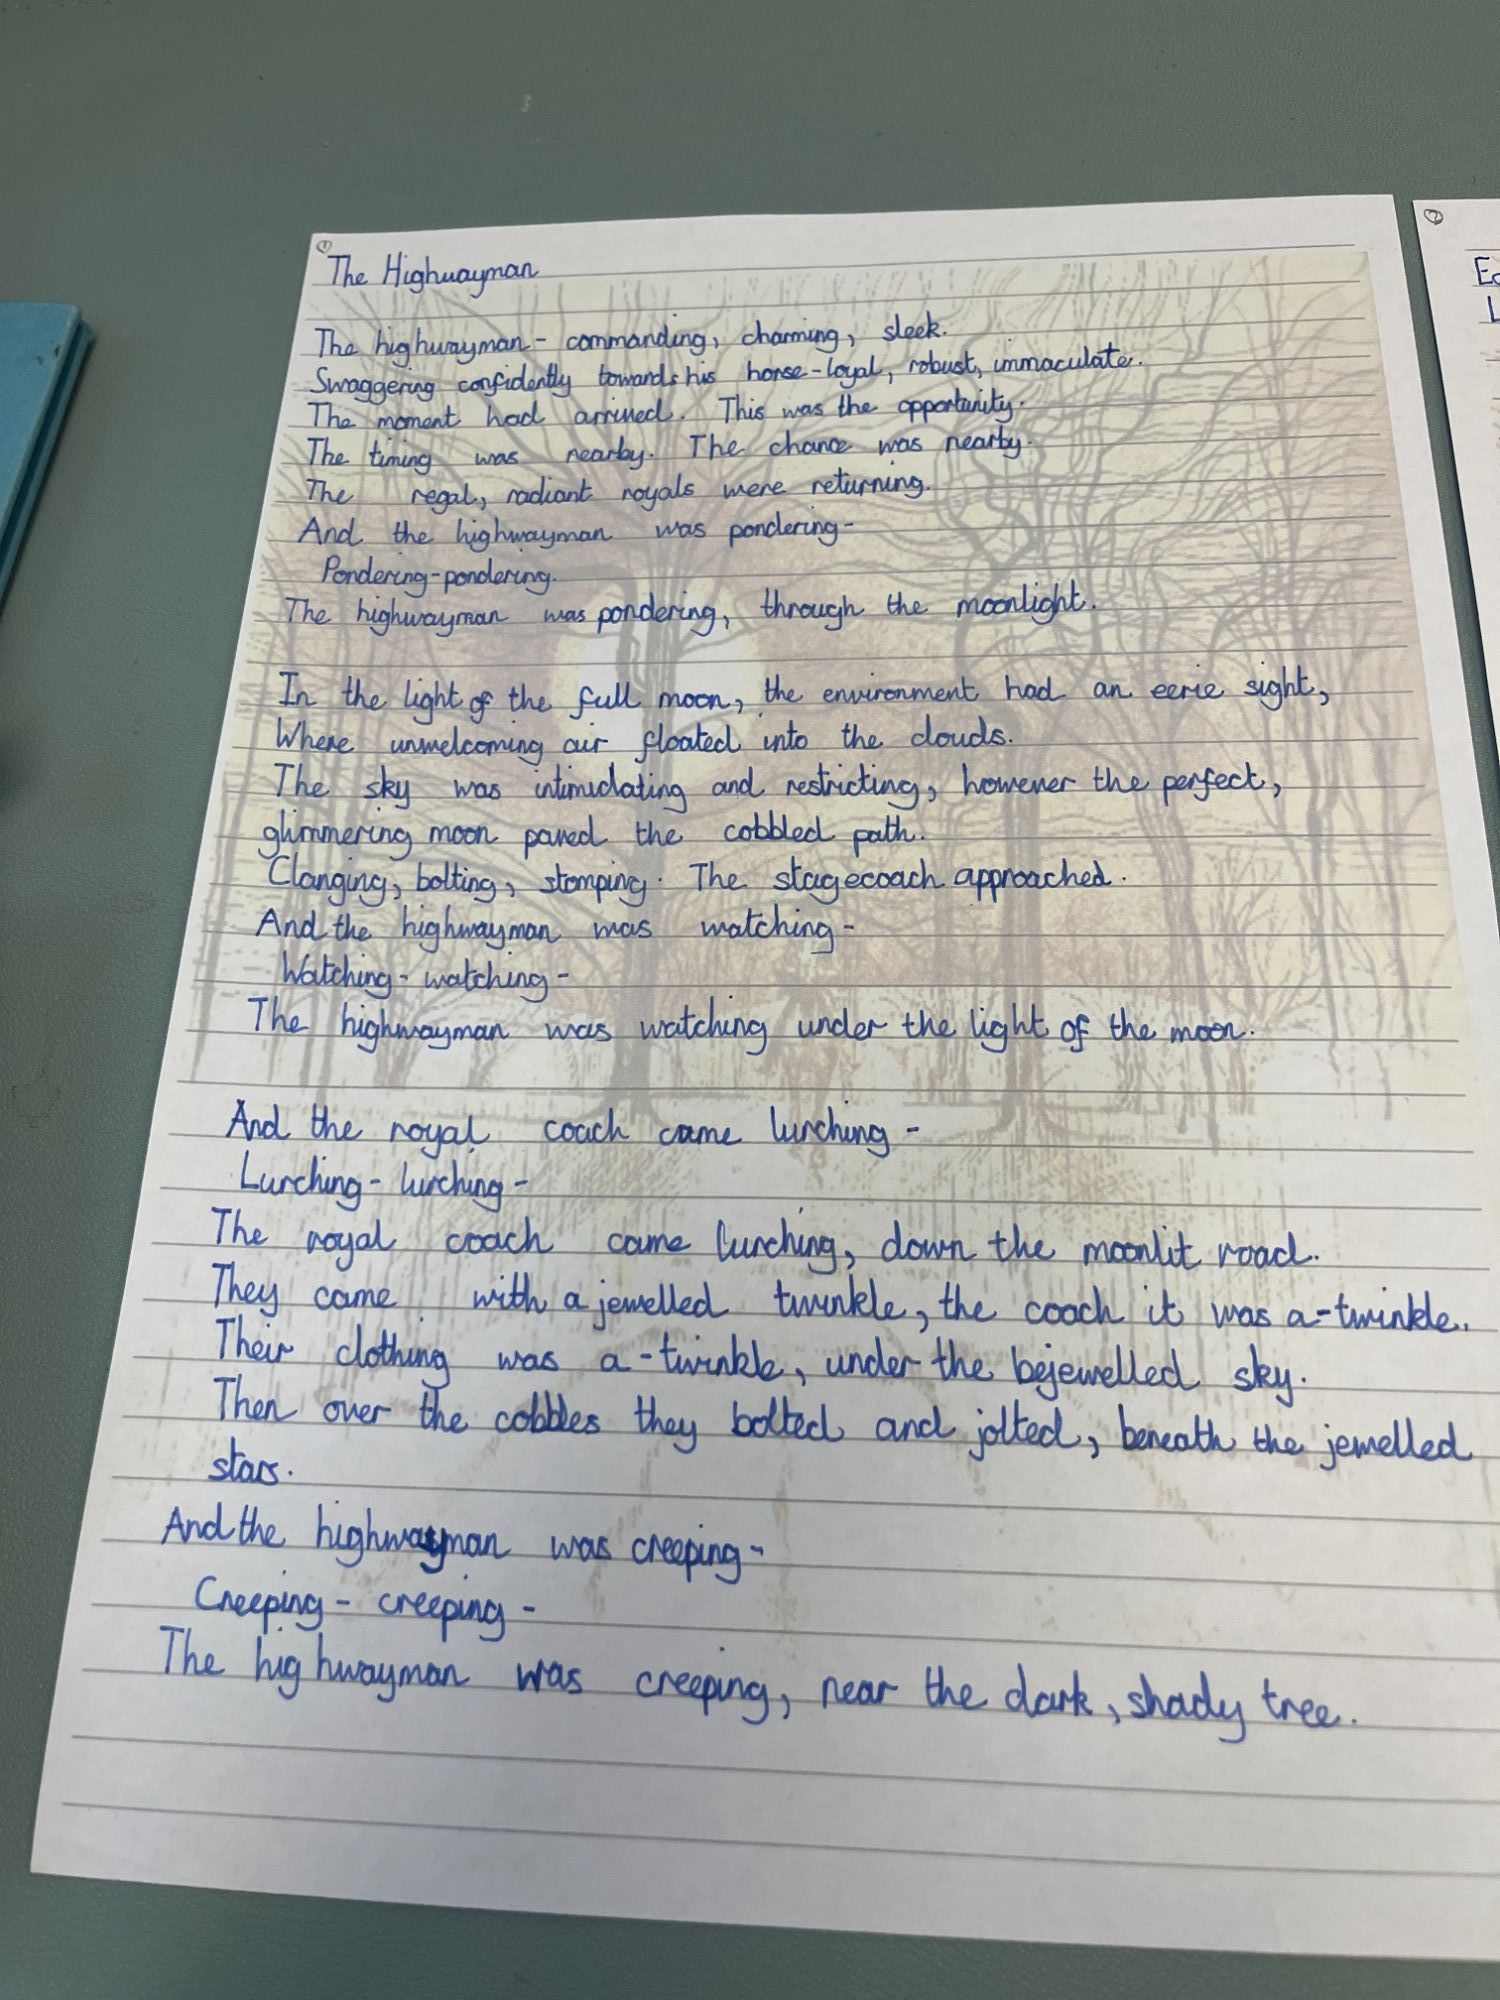 ①
The Highwayman
The highwayman - commanding, charming, sleek.
Swaggering confidently towards his horse - loyal, robust, immaculate.
The moment had arrived. This was the opportunity.
The timing was nearby. The chance was nearby.
The regal, radiant royals were returning.
And the highwayman was pondering -
Pondering - pondering.
The highwayman was pondering, through the moonlight.
In the light of the full moon, the environment had an eerie sight,
Where unwelcoming air floated into the clouds.
The sky was intimidating and restricting, however the perfect,
glimmering moon paved the cobbled path.
Clanging, bolting, stomping. The stagecoach approached.
And the highwayman was watching -
Watching - watching -
The highwayman was watching under the light of the moon.
And the royal coach came lurching -
Lurching - lurching -
The royal coach came lurching, down the moonlit road.
They came with a jewelled twinkle, the coach it was a-twinkle.
Their clothing was a-twinkle, under the bejewelled sky.
Then over the cobbles they bolted and jolted, beneath the jewelled
stars.
And the highwayman was creeping -
Creeping - creeping -
The highwayman was creeping, near the dark, shady tree.
②